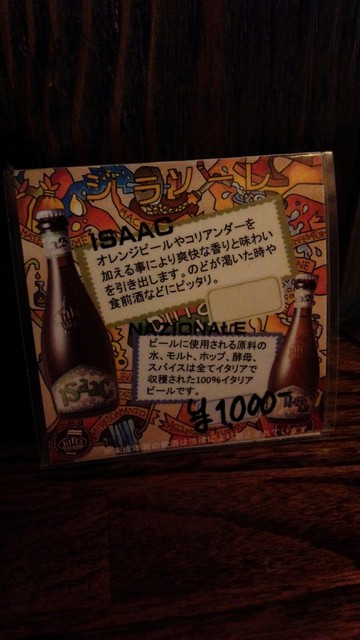 ISAAC
オレンジピールやコリアンダーを
加える事により爽快な香りと味わい
を引き出します。のどが渇いた時や
食前酒などにピッタリ。
NAZIONALE
ビールに使用される原料の
水、モルト、ホップ、酵母、
スパイスは全てイタリアで
収穫された100%イタリア
ビールです。
¥1000
ISAAC